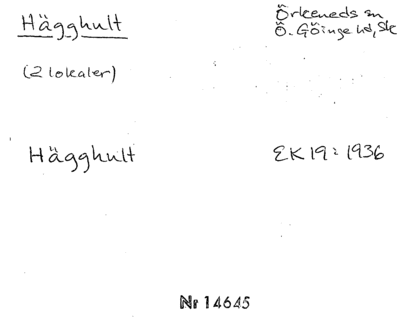 Hägghult
Örkeneds sn
Ö. Göinge hd, Sk
(2 lokaler)
Hägghult
EK 19: 1936
Nr 14645